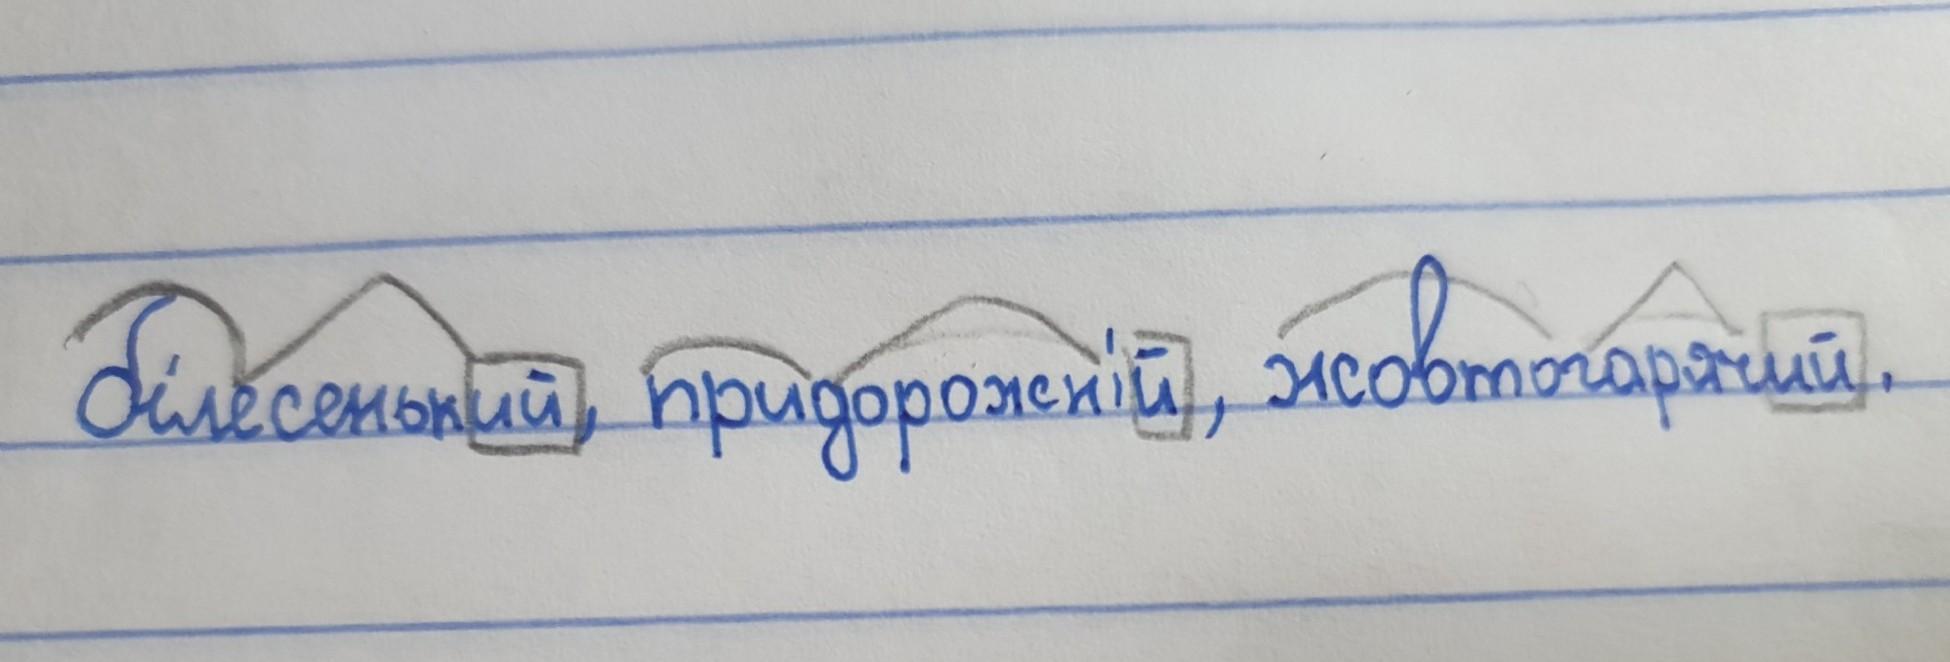 білесенький, придорожній, жовтогарячий.